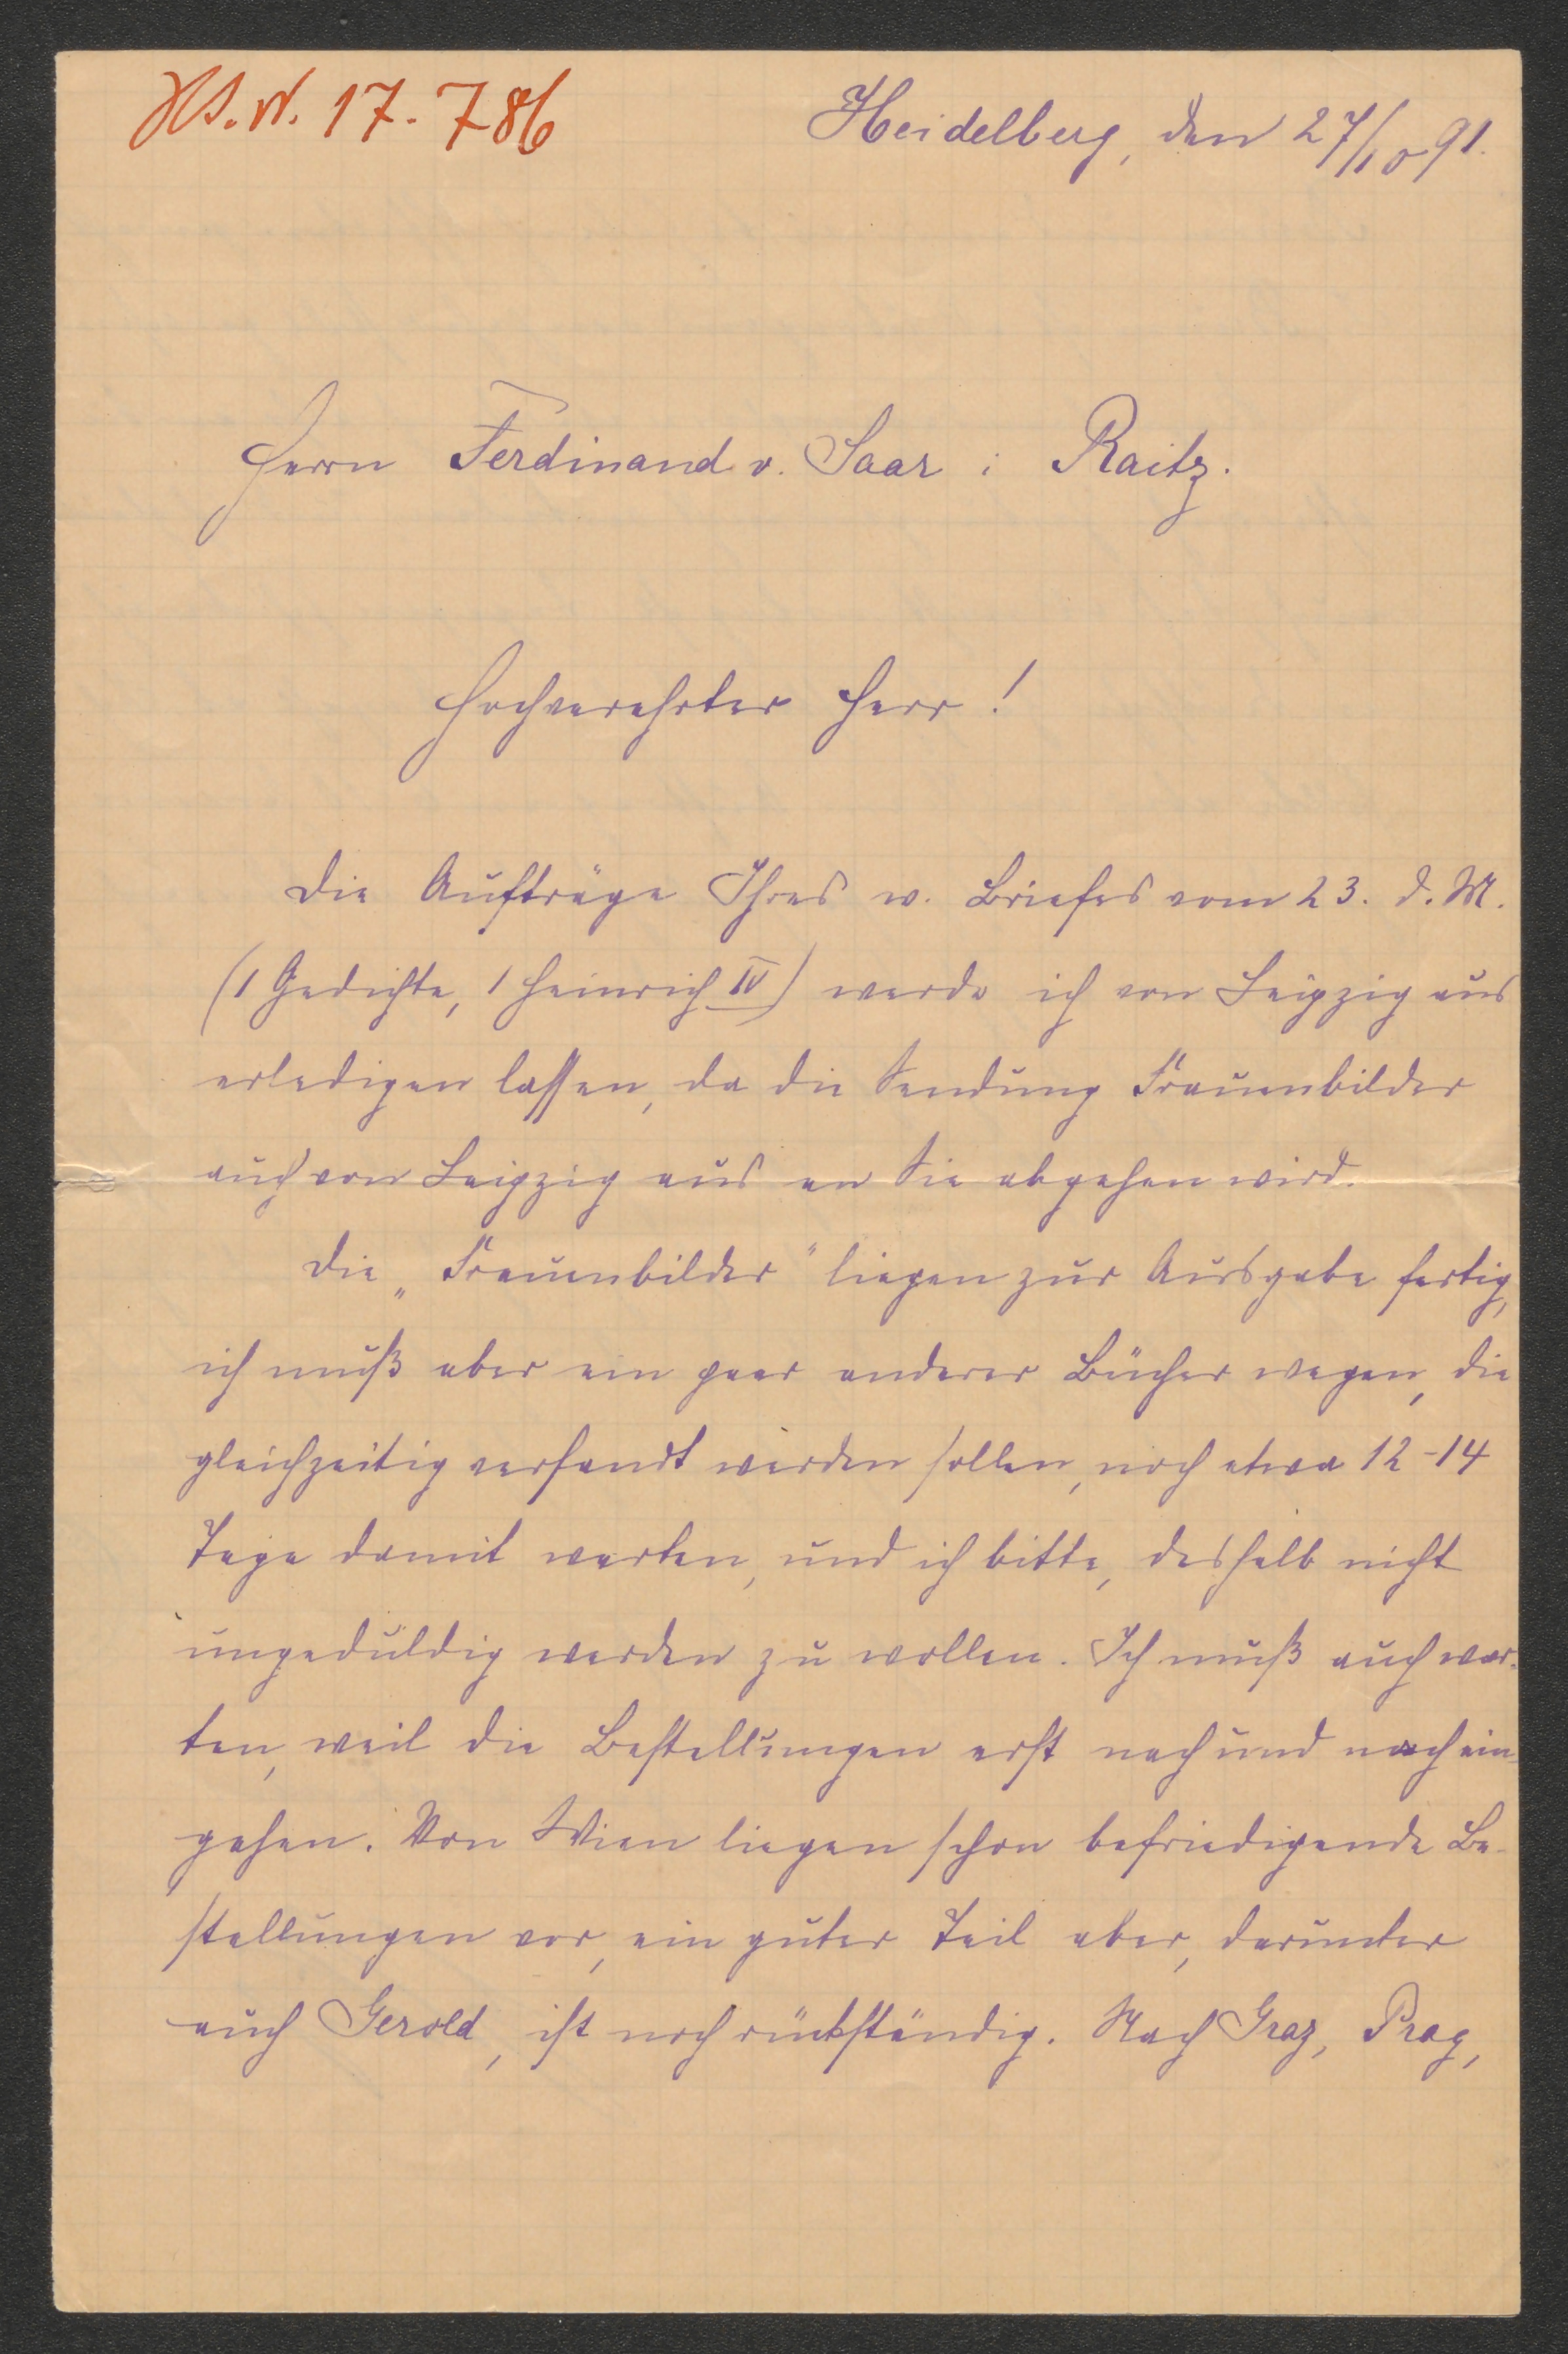 HS. N. 17.786
Heidelberg, den 27/10 91.
Herrn Ferdinand v. Saar i Raitz.
Hochverehrter Herr!
Die Aufträge Ihres w. Briefes vom 23. d. M.
(1 Gedichte, 1 Heinrich IV) werde ich von Leipzig aus
erledigen lassen, da die Sendung Frauenbilder
auch von Leipzig aus an Sie abgehen wird.
Die „Frauenbilder" liegen zur Ausgabe fertig,
ich muß aber ein paar anderer Bücher wegen, die
gleichzeitig versandt werden sollen, noch etwa 12-14
Tage damit warten, und ich bitte, deshalb nicht
ungeduldig werden zu wollen. Ich muß auch war-
ten, weil die Bestellungen erst nach und nach ein-
gehen. Von Wien liegen schon befriedigende Be-
stellungen vor, ein guter Teil aber, darunter
auch Gerold, ist noch rückständig. Nach Graz, Prag,